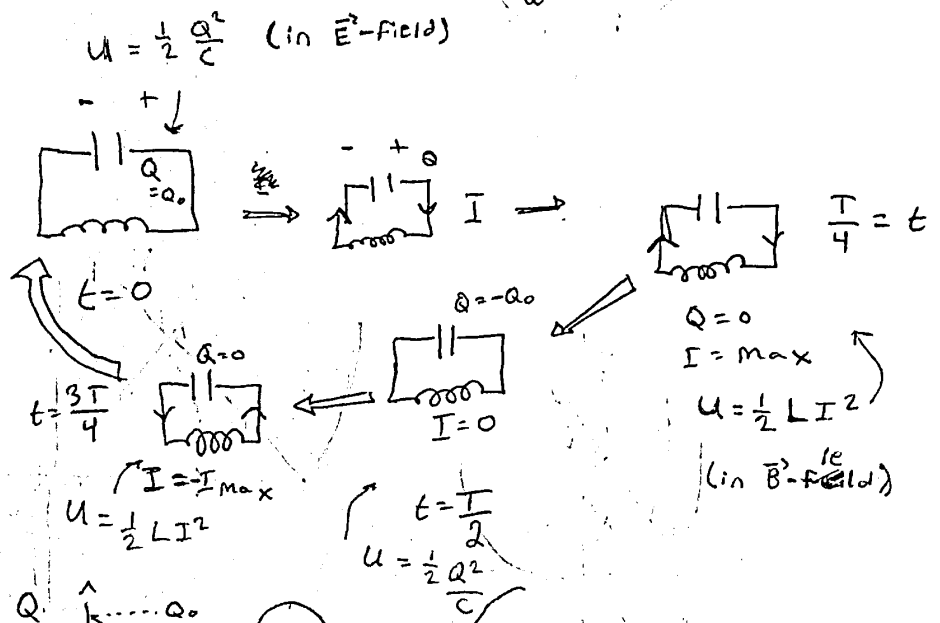 U = 1/2 Q²/C (in E⃗-field)
- +
Q = Q₀
t = 0
- + Q
I
T/4 = t
Q = 0
I = max
U = 1/2 L I²
(in B⃗-field)
Q = -Q₀
I = 0
t = T/2
U = 1/2 Q²/C
Q = 0
t = 3T/4
I = -I max
U = 1/2 L I²
Q Q₀